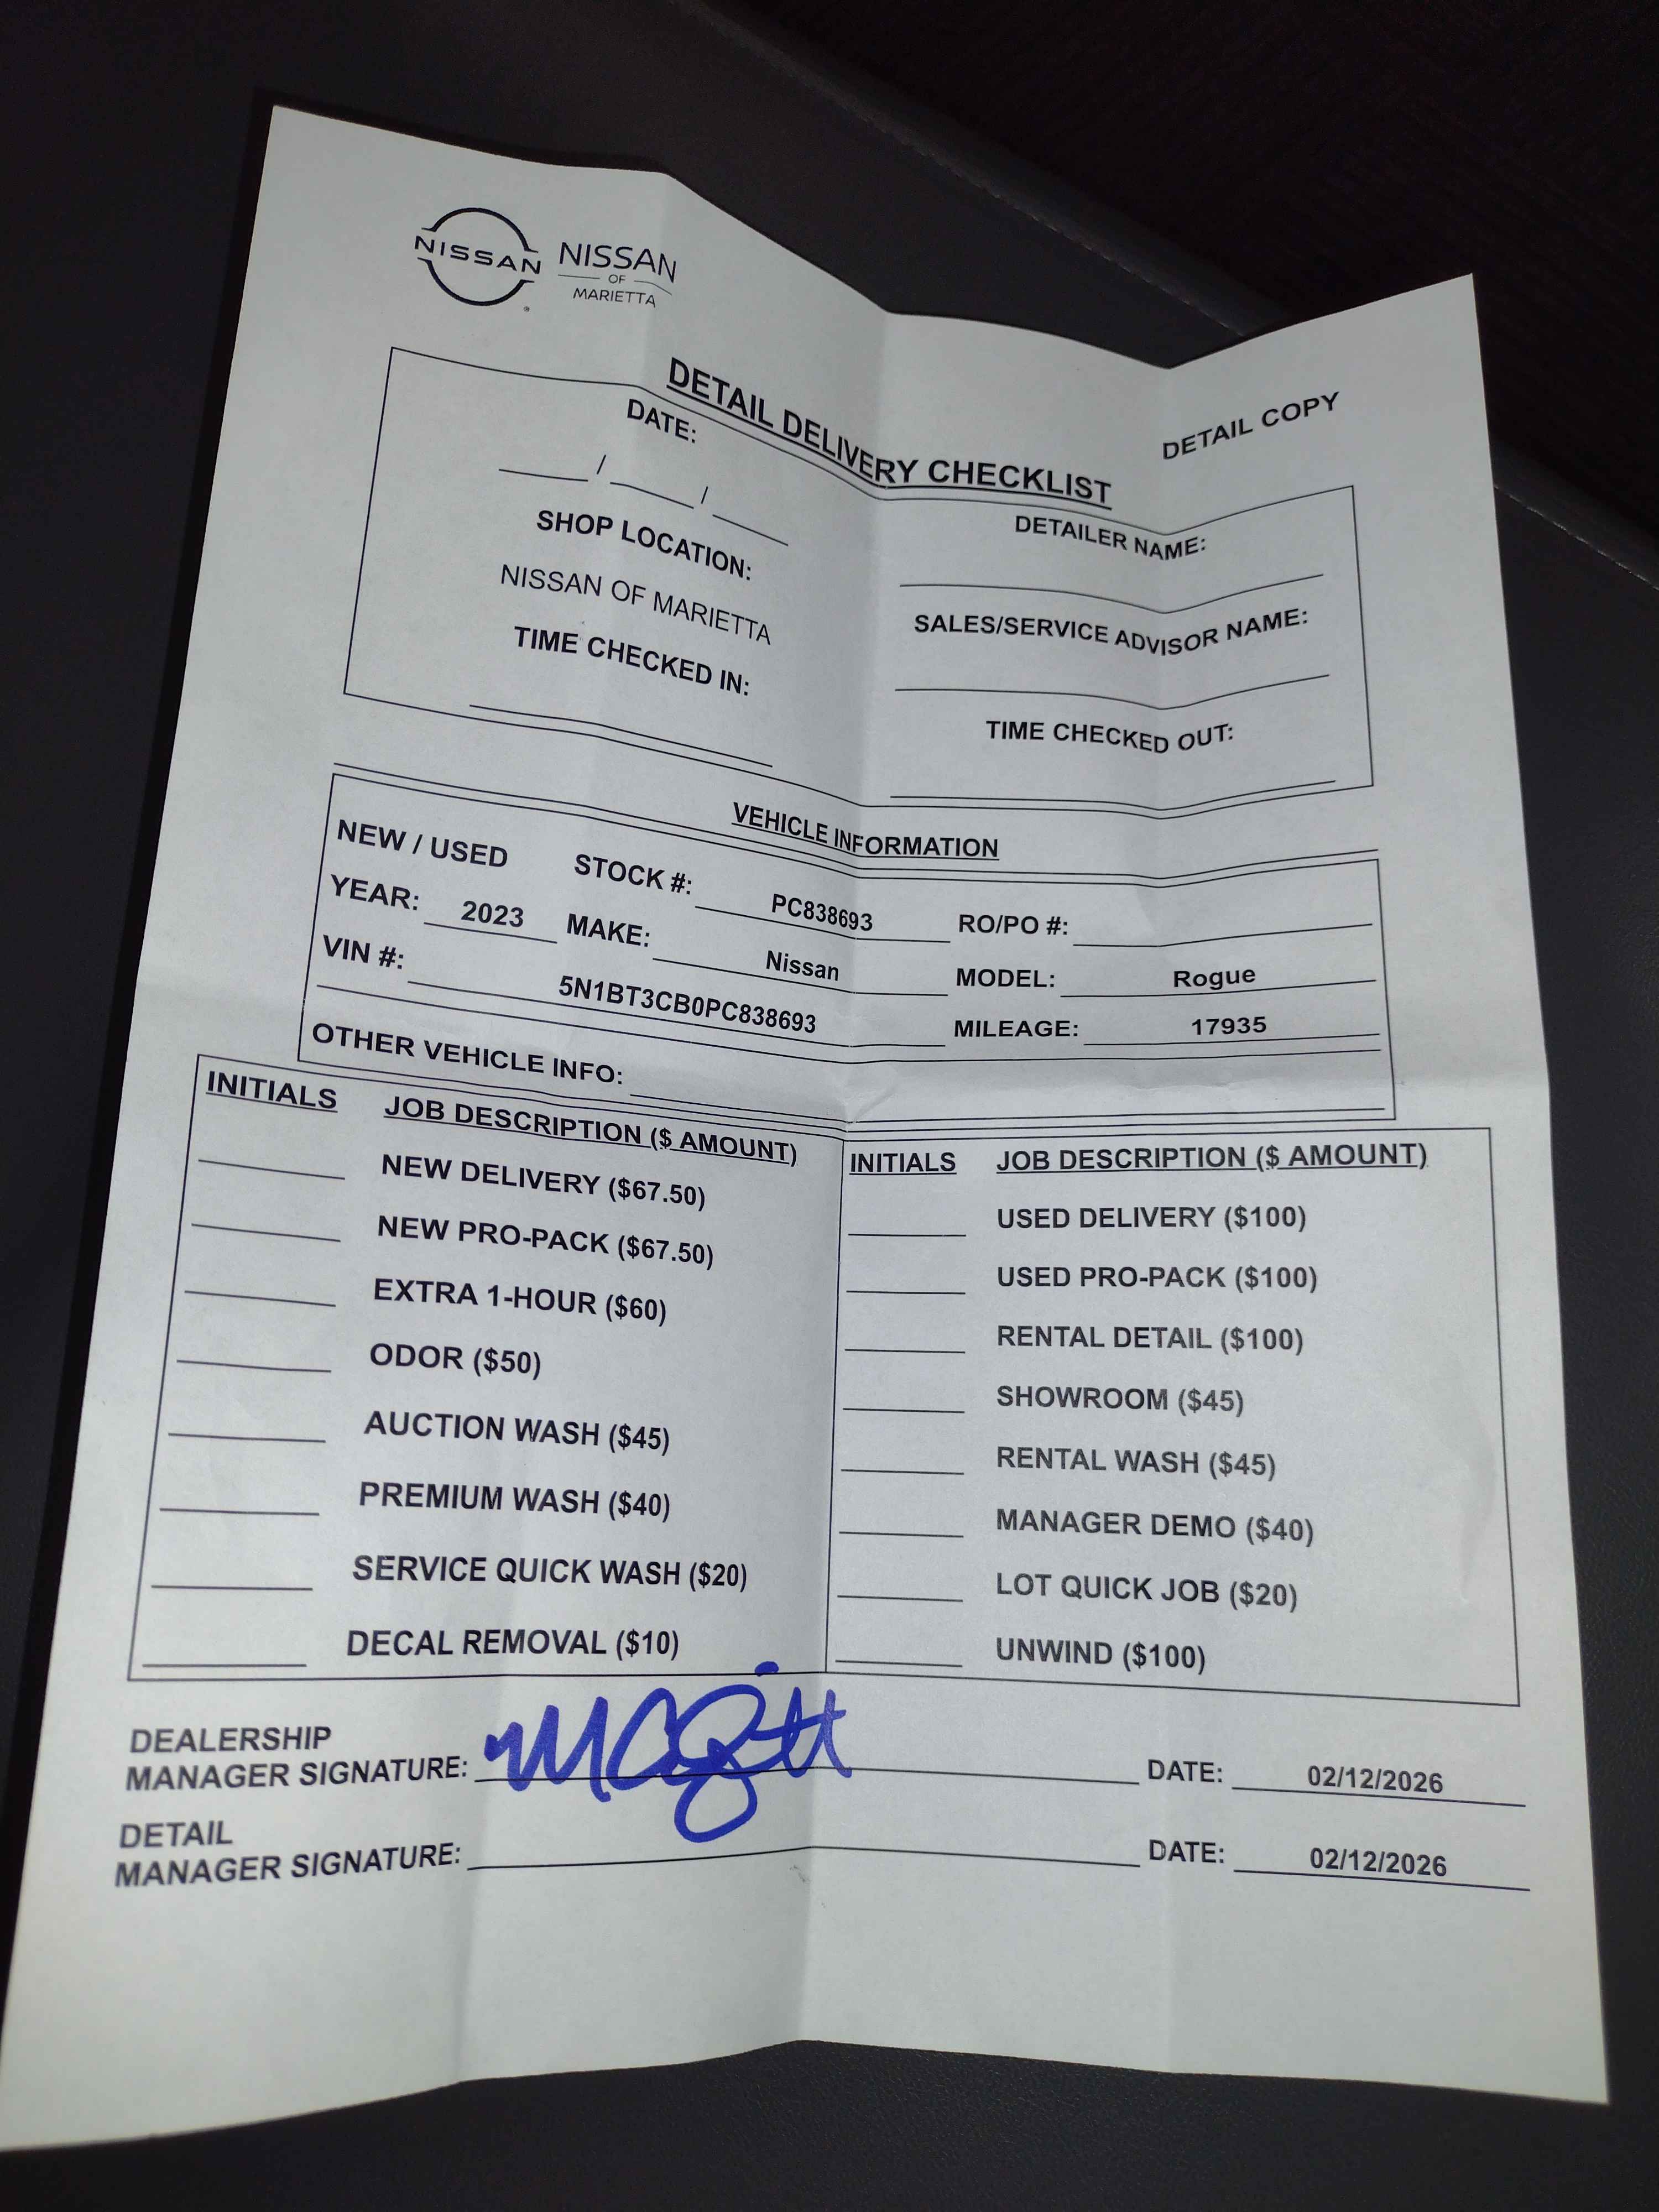 NISSAN
NISSAN
OF
MARIETTA
DETAIL COPY
DETAIL DELIVERY CHECKLIST
DATE:
____/____/____
SHOP LOCATION:
NISSAN OF MARIETTA
TIME CHECKED IN:
DETAILER NAME:
SALES/SERVICE ADVISOR NAME:
TIME CHECKED OUT:
VEHICLE INFORMATION
NEW / USED STOCK #: PC838693 RO/PO #:
YEAR: 2023 MAKE: Nissan MODEL: Rogue
VIN #: 5N1BT3CB0PC838693 MILEAGE: 17935
OTHER VEHICLE INFO:
INITIALS JOB DESCRIPTION ($ AMOUNT)
NEW DELIVERY ($67.50)
NEW PRO-PACK ($67.50)
EXTRA 1-HOUR ($60)
ODOR ($50)
AUCTION WASH ($45)
PREMIUM WASH ($40)
SERVICE QUICK WASH ($20)
DECAL REMOVAL ($10)
INITIALS JOB DESCRIPTION ($ AMOUNT)
USED DELIVERY ($100)
USED PRO-PACK ($100)
RENTAL DETAIL ($100)
SHOWROOM ($45)
RENTAL WASH ($45)
MANAGER DEMO ($40)
LOT QUICK JOB ($20)
UNWIND ($100)
DEALERSHIP
MANAGER SIGNATURE: DATE: 02/12/2026
DETAIL
MANAGER SIGNATURE: DATE: 02/12/2026